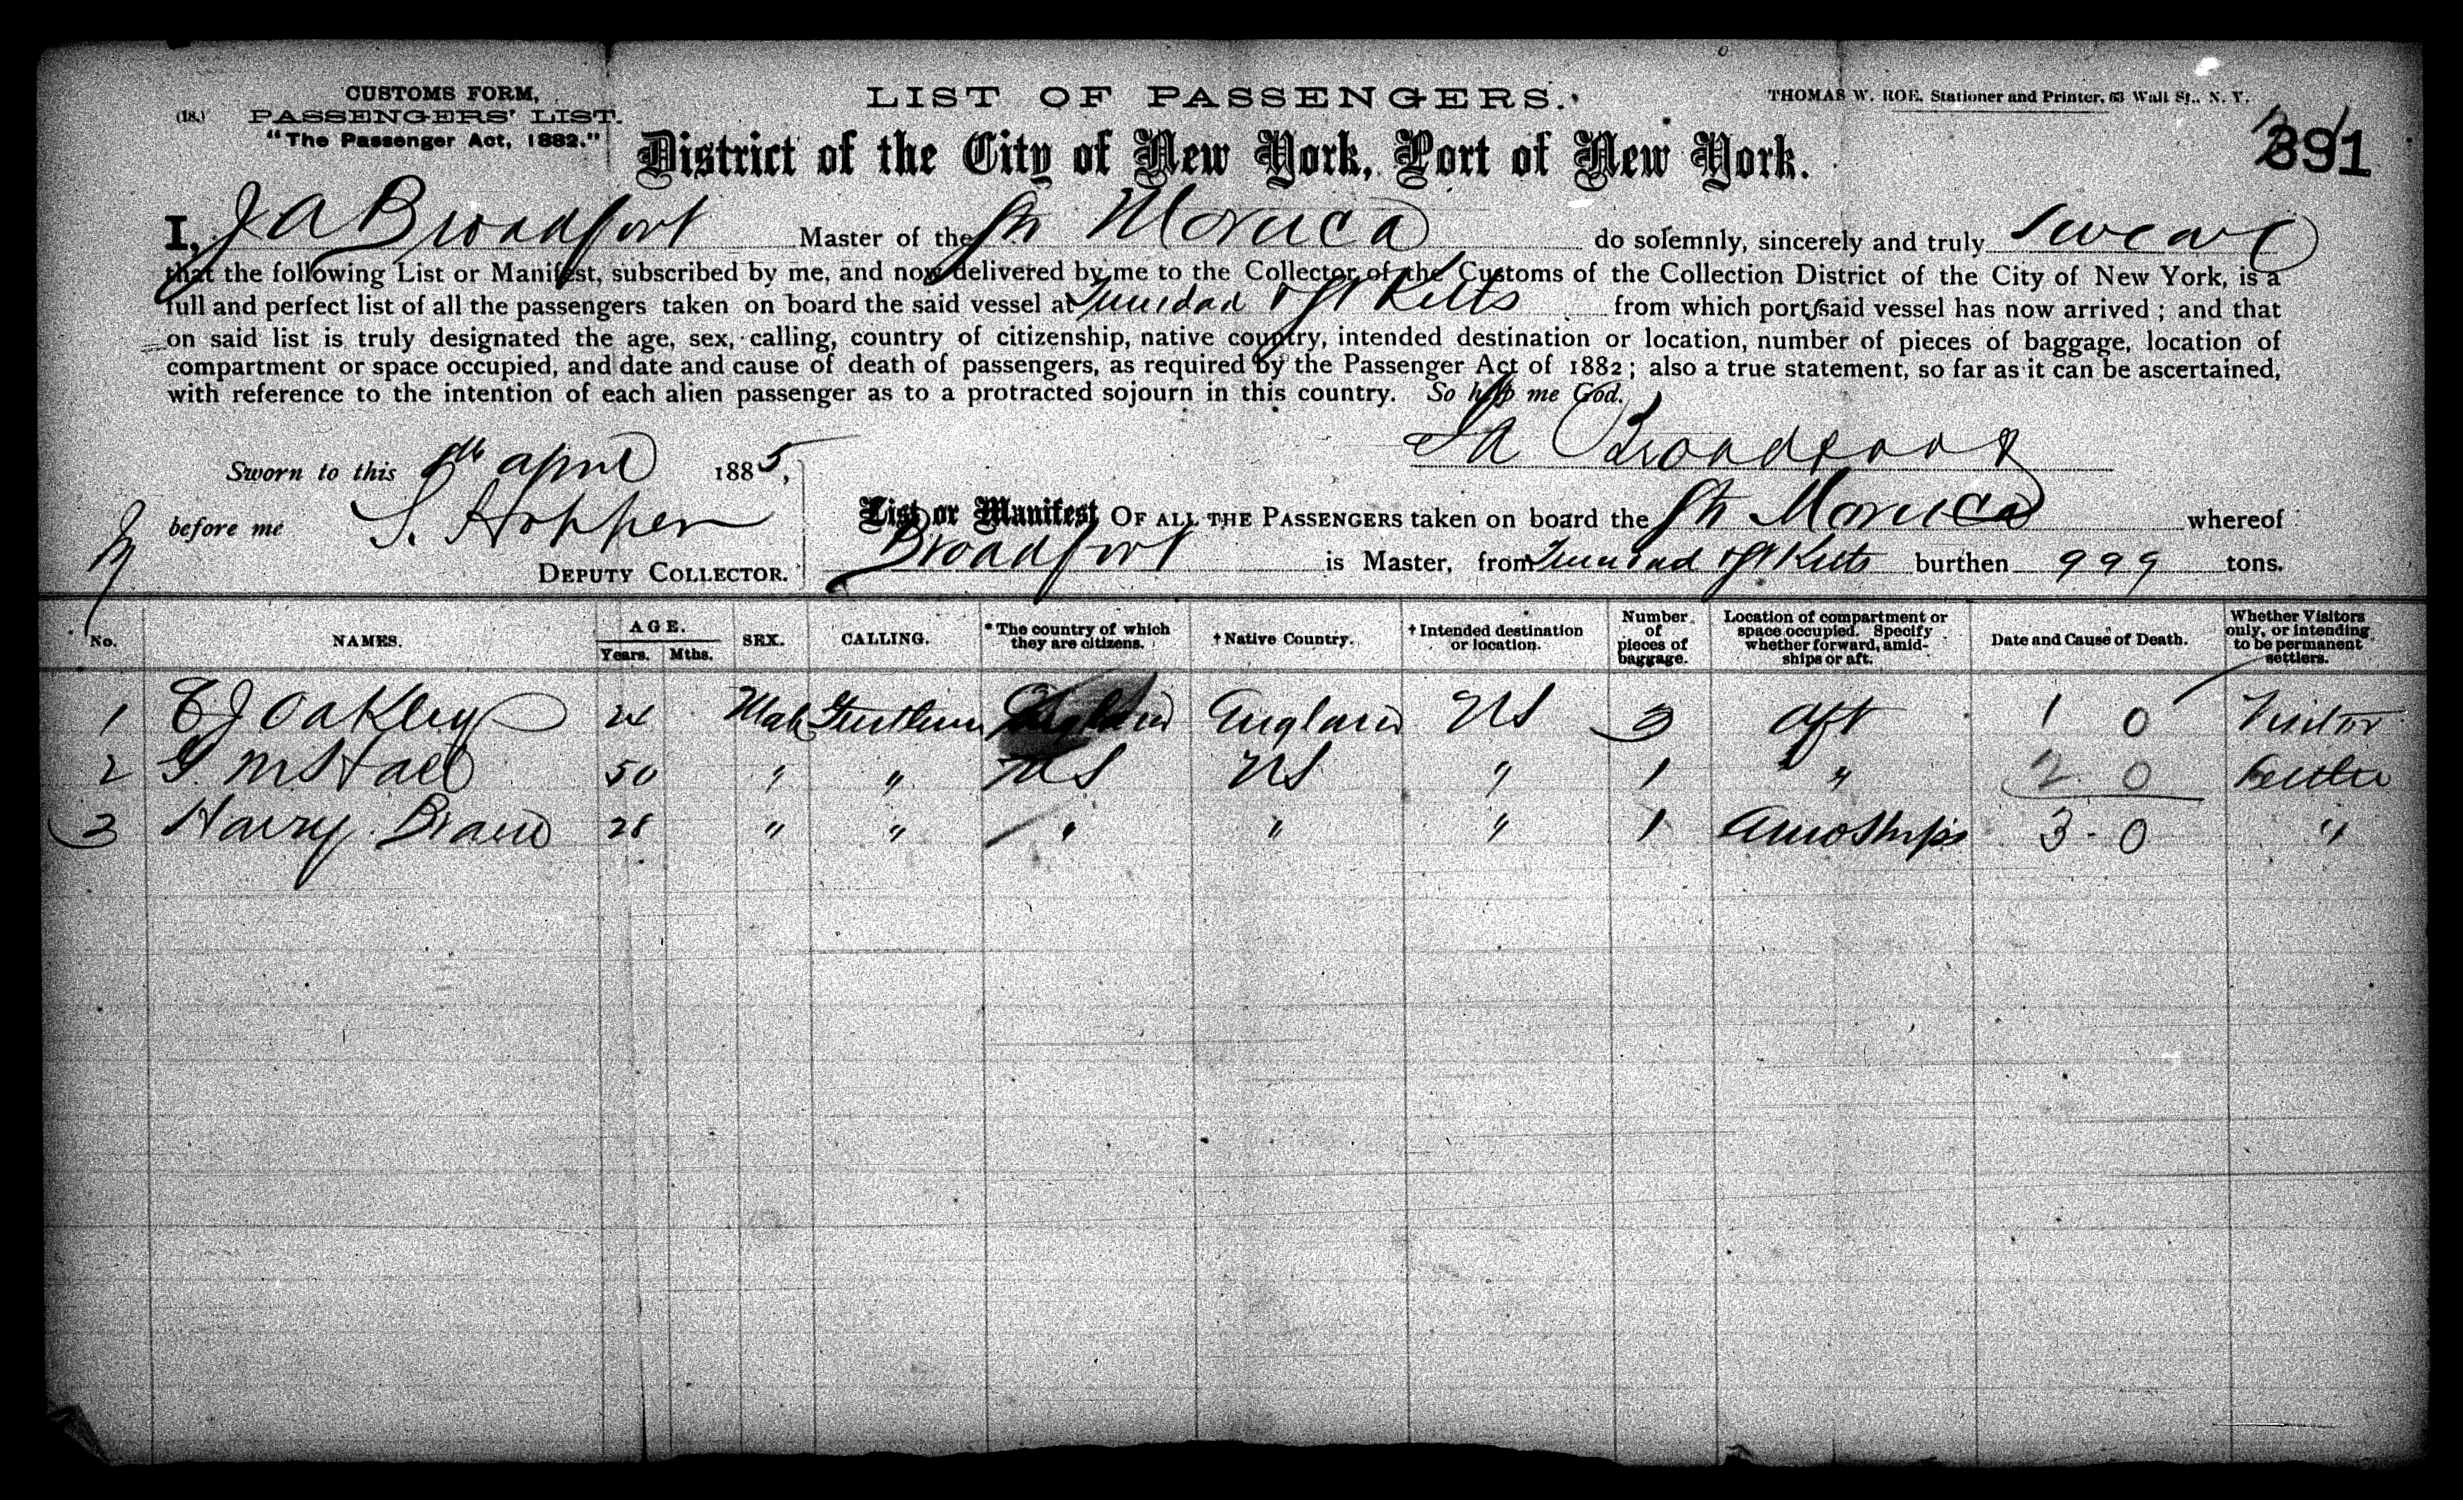 CUSTOMS FORM,
(18.) PASSENGERS' LIST.
"The Passenger Act, 1882."
LIST OF PASSENGERS.
THOMAS W. ROE, Stationer and Printer, 63 Wall St., N. Y.
391
District of the City of New York, Port of New York.
I, J A Broadfoot Master of the Str Moruca do solemnly, sincerely and truly swear
that the following List or Manifest, subscribed by me, and now delivered by me to the Collector of the Customs of the Collection District of the City of New York, is a
full and perfect list of all the passengers taken on board the said vessel at Trinidad & St Kitts from which ports said vessel has now arrived; and that
on said list is truly designated the age, sex, calling, country of citizenship, native country, intended destination or location, number of pieces of baggage, location of
compartment or space occupied, and date and cause of death of passengers, as required by the Passenger Act of 1882; also a true statement, so far as it can be ascertained,
with reference to the intention of each alien passenger as to a protracted sojourn in this country. So help me God.
JA Broadfoot
Sworn to this 6th april 1885,
before me S. Hopper
DEPUTY COLLECTOR.
List or Manifest OF ALL THE PASSENGERS taken on board the Str Moruca whereof
Broadfoot is Master, from Trinidad & St Kitts burthen 999 tons.
No. NAMES. AGE. Years. Mths. SEX. CALLING. * The country of which they are citizens. † Native Country. † Intended destination or location. Number of pieces of baggage. Location of compartment or space occupied. Specify whether forward, amidships or aft. Date and Cause of Death. Whether Visitors only, or intending to be permanent settlers.
1 E J Oakley 24 Male Gentleman England England US 3 aft 1 0 Visitor
2 G M Hall 50 " " US US " 1 " 2 0 Settler
3 Harry Brown 28 " " " " " 1 Amidships 3 - 0 "